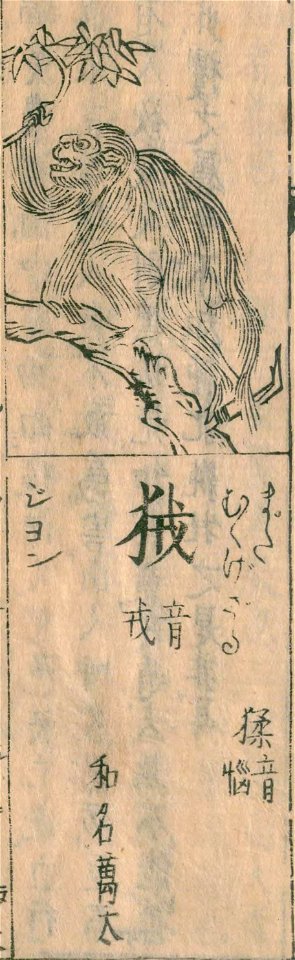 また
むくげざる
猱 音惱
狨
音戎
和名萬太
ジヨン